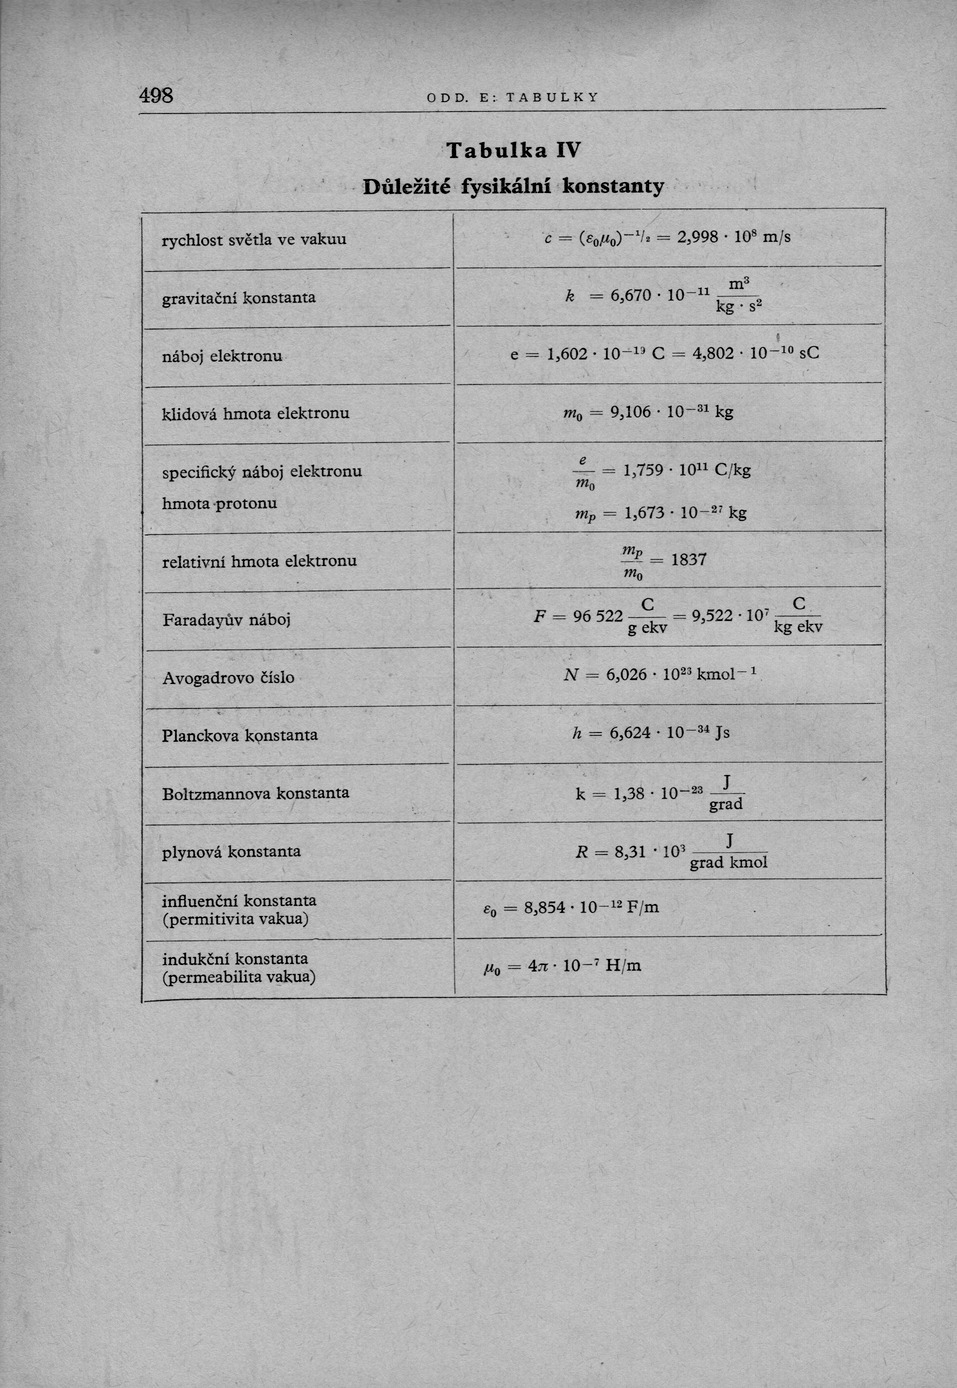 498
ODD. E: TABULKY
Tabulka IV
Důležité fysikální konstanty
rychlost světla ve vakuu c = (ε₀μ₀)⁻¹/² = 2,998 · 10⁸ m/s
gravitační konstanta k = 6,670 · 10⁻¹¹ m³/(kg · s²)
náboj elektronu e = 1,602 · 10⁻¹⁹ C = 4,802 · 10⁻¹⁰ sC
klidová hmota elektronu m₀ = 9,106 · 10⁻³¹ kg
specifický náboj elektronu e/m₀ = 1,759 · 10¹¹ C/kg
hmota protonu mₚ = 1,673 · 10⁻²⁷ kg
relativní hmota elektronu mₚ/m₀ = 1837
Faradayův náboj F = 96 522 C/(g ekv) = 9,522 · 10⁷ C/(kg ekv)
Avogadrovo číslo N = 6,026 · 10²³ kmol⁻¹
Planckova konstanta h = 6,624 · 10⁻³⁴ Js
Boltzmannova konstanta k = 1,38 · 10⁻²³ J/grad
plynová konstanta R = 8,31 · 10³ J/(grad kmol)
influenční konstanta
(permitivita vakua) ε₀ = 8,854 · 10⁻¹² F/m
indukční konstanta
(permeabilita vakua) μ₀ = 4π · 10⁻⁷ H/m